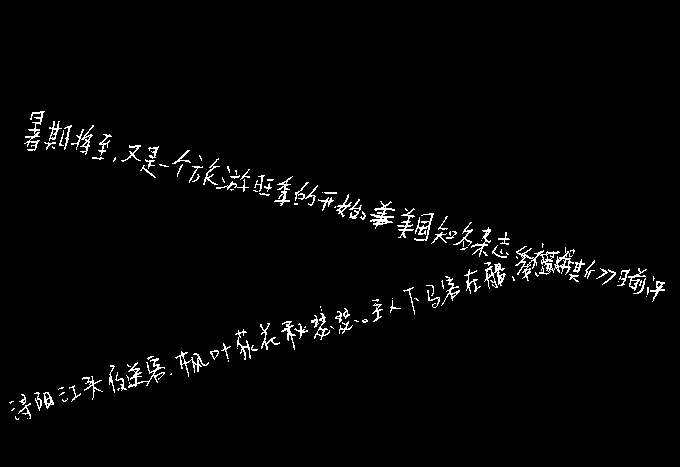 暑期将至,又是一个旅游旺季的开始。美国知名杂志斯》日前评
浔阳江头夜送客.枫叶荻花秋瑟瑟。主人下马客在船,